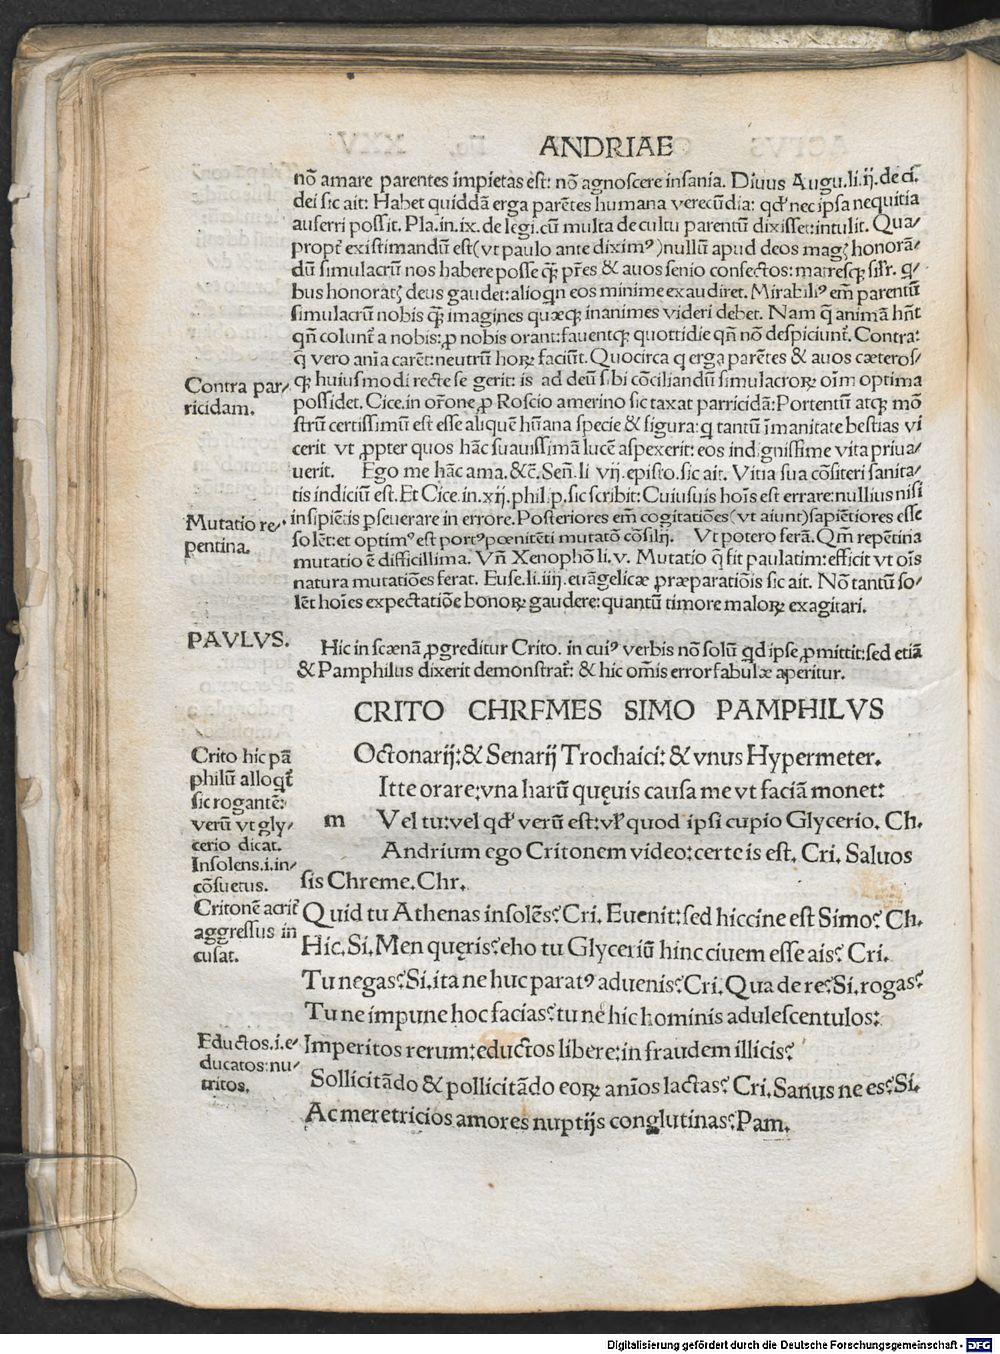 ANDRIAE
nõ amare parentes impietas est: nõ agnoscere insania. Diuus Augu. li. ij. de ci.
dei sic ait: Habet quiddã erga parẽtes humana verecũdia: qd' nec ipsa nequitia
auferri possit. Pla. in. ix. de legi. cũ multa de cultu parentũ dixisset: intulit. Qua/
propt' existimandũ est (vt paulo ante dixim⁹) nullũ apud deos magꝭ honorã/
dũ simulacrũ nos habere posse q̃ꝫ pr̃es & auos senio confectos: matresqꝫ sil'r. q/
bus honoratꝭ deus gaudet: alioqn eos minime exaudiret. Mirabili⁹ em̃ parentũ
simulacrũ nobis q̃ꝫ imagines quæqꝫ inanimes videri debet. Nam q̃ animã hñt
qñ colunt̃ a nobis: ꝓ nobis orant: fauentqꝫ quottidie qñ nõ despiciunt̃. Contra:
q̃ vero aĩa carẽt: neutrũ hoꝝ faciũt. Quocirca q erga parẽtes & auos cæteros/
qꝫ huiusmodi recte se gerit: is ad deũ sibi cõciliandũ simulacroꝝ oĩm optima
possidet. Cice. in or̃one ꝓ Roscio amerino sic taxat parricidã: Portentũ atqꝫ mõ
strũ certissimũ est esse aliquẽ hũana specie & figura: q tantũ ĩmanitate bestias vi
cerit vt ꝓpter quos hãc suauissimã lucẽ aspexerit: eos indignissime vita priua/
uerit. Ego me hãc ama. &c̃. Señ. li vij. episto. sic ait. Vitia sua cõfiteri sanita/
tis indiciũ est. Et Cice. in. xij. phil. p. sic scribit: Cuiusuis hoĩs est errare: nullius nisi
insipiẽtis ꝑseuerare in errore. Posteriores em̃ cogitatiões (vt aiunt) sapiẽtiores esse
solẽt: et optim⁹ est port⁹ pœnitẽti mutatõ cõsilij. Vt potero ferã. Qm̃ repẽtina
mutatio ẽ difficillima. Vñ Xenophõ li. v. Mutatio q̃ fit paulatim: efficit vt oĩs
natura mutatiões ferat. Euse. li. iiij. euãgelicæ præparatiõis sic ait. Nõ tantũ so/
lẽt hoĩes expectatiõe bonoꝝ gaudere: quantũ timore maloꝝ exagitari.
Contra par/
ricidam.
Mutatio re/
pentina.
PAVLVS.
Hic in scænã ꝓgreditur Crito. in cui⁹ verbis nõ solũ qd ipse ꝓmittit: sed etiã
& Pamphilus dixerit demonstrat̃: & hic om̃is error fabulæ aperitur.
CRITO CHREMES SIMO PAMPHILVS
Octonarij: & Senarij Trochaici: & vnus Hypermeter.
Itte orare: vna harũ quęuis causa me vt faciã monet:
m Vel tu: vel qd' verũ est: vl' quod ipsi cupio Glycerio. Ch.
Andrium ego Critonem video: certe is est. Cri. Saluos
sis Chreme. Chr.
Quid tu Athenas insolẽs? Cri. Euenit: sed hiccine est Simo? Ch.
Hic. Si. Men quęris? eho tu Glyceriũ hinc ciuem esse ais? Cri.
Tu negas? Si. ita ne huc parat⁹ aduenis? Cri. Qua de re? Si. rogas?
Tu ne impune hoc facias? tu ne hic hominis adulescentulos:
Imperitos rerum: eductos libere: in fraudem illicis?
Sollicitãdo & pollicitãdo eoꝝ anĩos lactas? Cri. Sanus ne es? Si.
Ac meretricios amores nuptijs conglutinas? Pam.
Crito hic pã
philũ alloqt̃
sic rogantẽ:
verũ vt gly/
cerio dicat.
Insolens. i. in/
cõsuetus.
Critonẽ acrit̃
aggressus in
cusat.
Eductos. i. e/
ducatos: nu/
tritos.
Digitalisierung gefördert durch die Deutsche Forschungsgemeinschaft - DFG